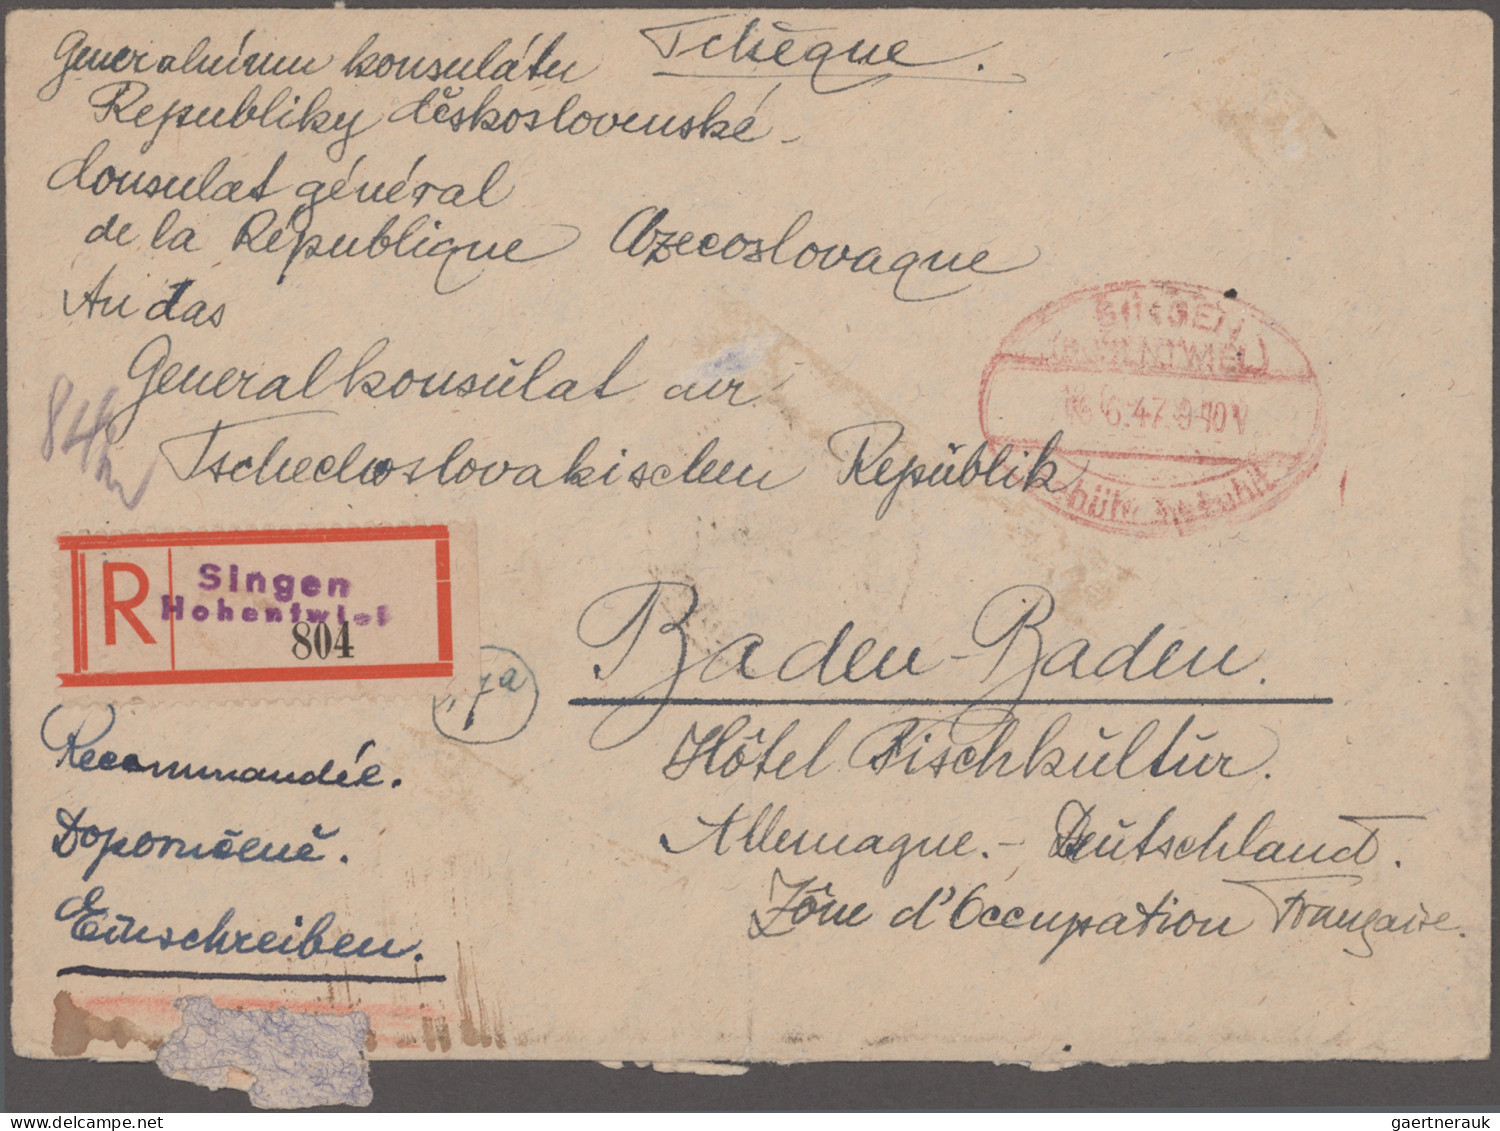 Generalnímu konsulátu Tchèque.
Republiky Československé
Consulat général
de la République Czecoslovaque
An das
Generalkonsulat der
Tschechoslovakischen Republik
84
SINGEN
(HOHENTWIEL)
6.47.9-10V
R Singen
Hohentwiel
804
7a
Baden-Baden.
Hôtel Fischkultur.
Allemagne.- Deutschland.
Zône d'Occupation Française.
Recommandée.
Doporučeně.
Einschreiben.
delcampe.net
gaertnerauk